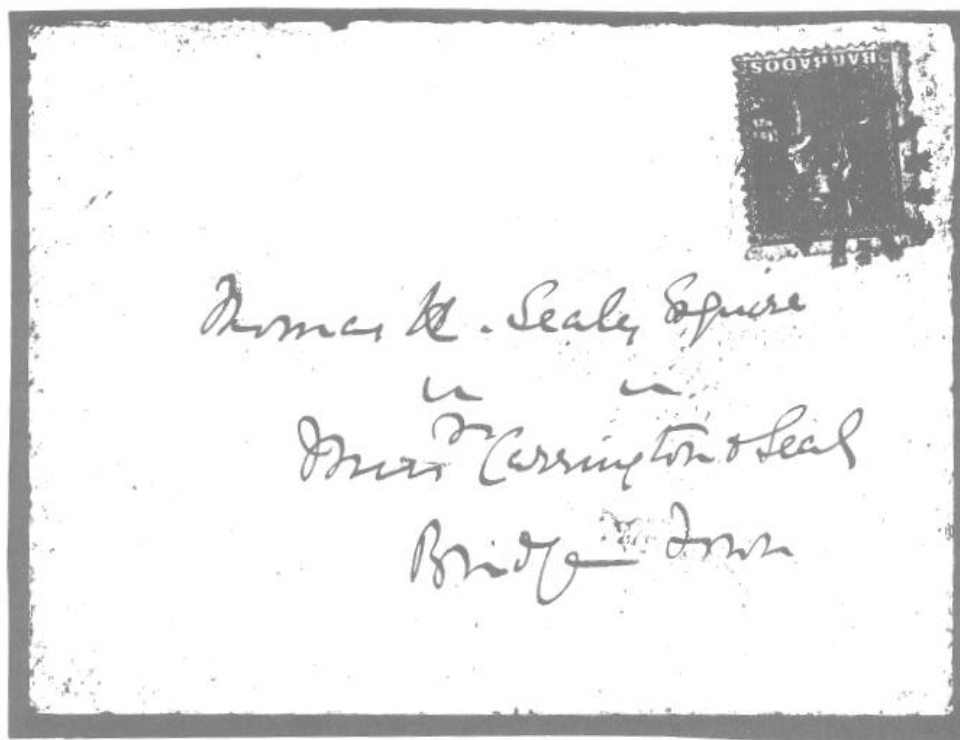 BARBADOS
Thomas H. Sealy Esquire
" "
Messrs Carrington & Sealy
Bridge Town